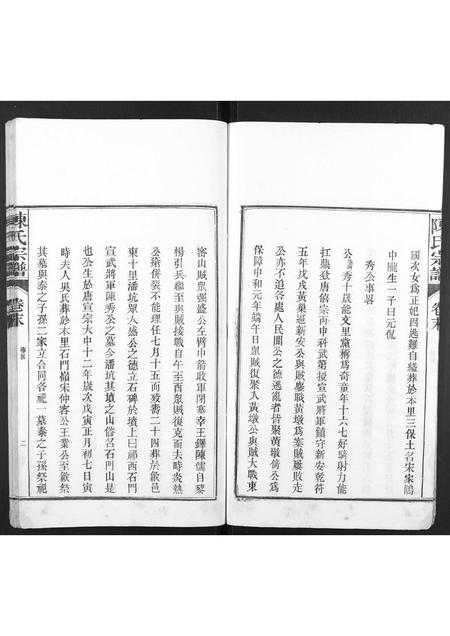 陳氏宗譜
卷末
國次女爲正妃因逃難自縊葬於本里三保土名宋家鵰
中隴生一子曰元侃
秀公事畧
公諱秀十歲能文里黨稱爲奇童年十六七好騎射力能
扛鼎登唐僖宗再申科武第授宣武將軍鎮守新安乾符
五年戊戌黃巢逼新安公與賊鏖戰黃墩爲寨賊屢敗走
公亦不追各處人民聞公之德逃亂者皆聚黃墩倚公爲
保障中和元年端午日眾賊復聚人黃墩公與賊大戰東
密山賊眾强盛公左臂中箭收軍閉寨幸王鐸陳儒自黎
楊引兵繼至與賊接戰自午至酉眾賊復克而夫時炎熱
公瘡併裂不能理任七月十五而歿壽二十四葬於歙邑
東十里潘坑眾人感公之德立石碑於墳上曰祁西石門
宣武將軍陳秀公之墓今潘坑其墳之山俗名石門山是
也公生於唐宣宗大中十二年歲次戊寅正月初七日寅
時夫人吳氏葬於本里石門嶺宋仲容公王業公至歙祭祀
其墓與泰之子孫二家立合同各祀一墓泰之子孫祭祀
陳氏宗譜
卷末
事畧
二